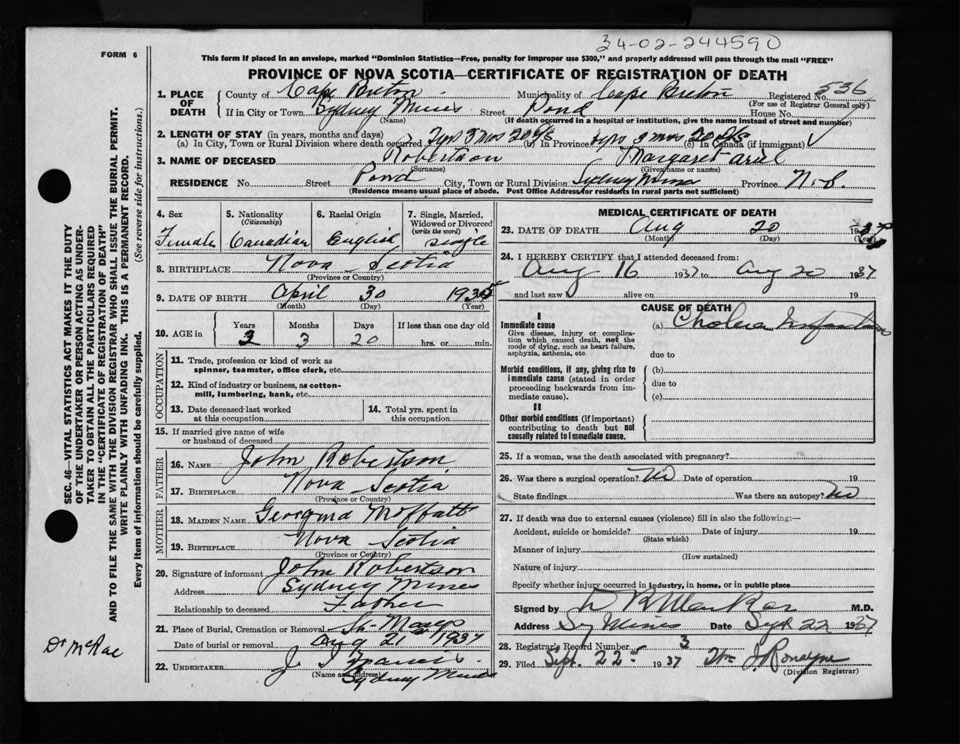 34-02-244590
FORM 6
This form if placed in an envelope, marked "Dominion Statistics—Free, penalty for improper use $300," and properly addressed will pass through the mail "FREE"
PROVINCE OF NOVA SCOTIA—CERTIFICATE OF REGISTRATION OF DEATH
1. PLACE OF DEATH County of Cape Breton Municipality of Cape Breton Registered No. 536
(For use of Registrar General only)
If in City or Town Sydney Mines Street Pond House No.
(Name) (If death occurred in a hospital or institution, give the name instead of street and number)
2. LENGTH OF STAY (in years, months and days)
(a) In City, Town or Rural Division where death occurred 2 yrs 3 mos 20 ds (b) In Province 2 yrs 3 mos 20 ds (c) In Canada (if immigrant)
3. NAME OF DECEASED Robertson Margaret Ariel
(Surname) (Given name or names)
RESIDENCE No. Street Pond City, Town or Rural Division Sydney Mines Province N.S.
(Residence means usual place of abode. Post Office Address for residents in rural parts not sufficient)
4. Sex Female
5. Nationality (Citizenship) Canadian
6. Racial Origin English
7. Single, Married, Widowed or Divorced (write the word) single
8. BIRTHPLACE Nova Scotia
(Province or Country)
9. DATE OF BIRTH April 30 1935
(Month) (Day) (Year)
10. AGE in Years Months Days If less than one day old
3 20 hrs. or min.
OCCUPATION
11. Trade, profession or kind of work as spinner, teamster, office clerk, etc.
12. Kind of industry or business, as cotton-mill, lumbering, bank, etc.
13. Date deceased last worked at this occupation
14. Total yrs. spent in this occupation
15. If married give name of wife or husband of deceased
FATHER
16. NAME John Robertson
17. BIRTHPLACE Nova Scotia
(Province or Country)
MOTHER
18. MAIDEN NAME Georgina Moffatt
19. BIRTHPLACE Nova Scotia
(Province or Country)
20. Signature of informant John Robertson
Address Sydney Mines
Relationship to deceased Father
21. Place of Burial, Cremation or Removal
Date of burial or removal Aug 21 1937
22. UNDERTAKER J. J. Francis
(Name and address) Sydney Mines
MEDICAL CERTIFICATE OF DEATH
23. DATE OF DEATH Aug 20 1937
(Month) (Day) (Year)
24. I HEREBY CERTIFY that I attended deceased from:
Aug 16 1937 to Aug 20 1937
and last saw alive on 19
CAUSE OF DEATH
I
Immediate cause (a) Cholera Infantum
Give disease, injury or complication which caused death, not the mode of dying, such as heart failure, asphyxia, asthenia, etc.
due to
Morbid conditions, if any, giving rise to immediate cause (stated in order proceeding backwards from immediate cause).
(b)
due to
(c)
II
Other morbid conditions (if important) contributing to death but not causally related to immediate cause.
25. If a woman, was the death associated with pregnancy?
26. Was there a surgical operation? No Date of operation 19
State findings Was there an autopsy? No
27. If death was due to external causes (violence) fill in also the following:—
Accident, suicide or homicide? Date of injury 19
(State which)
Manner of injury
(How sustained)
Nature of injury
Specify whether injury occurred in industry, in home, or in public place
Signed by M.D.
Address Sy Mines Date Sept 22 1937
28. Registrar's Record Number 3
29. Filed Sept. 22 1937
(Division Registrar)
SEC. 46—VITAL STATISTICS ACT MAKES IT THE DUTY
OF THE UNDERTAKER OR PERSON ACTING AS UNDER-
TAKER TO OBTAIN ALL THE PARTICULARS REQUIRED
IN THE "CERTIFICATE OF REGISTRATION OF DEATH"
AND TO FILE THE SAME WITH THE DIVISION REGISTRAR WHO SHALL ISSUE THE BURIAL PERMIT.
WRITE PLAINLY WITH UNFADING INK. THIS IS A PERMANENT RECORD.
Every item of information should be carefully supplied. (See reverse side for instructions.)
Dr McRae